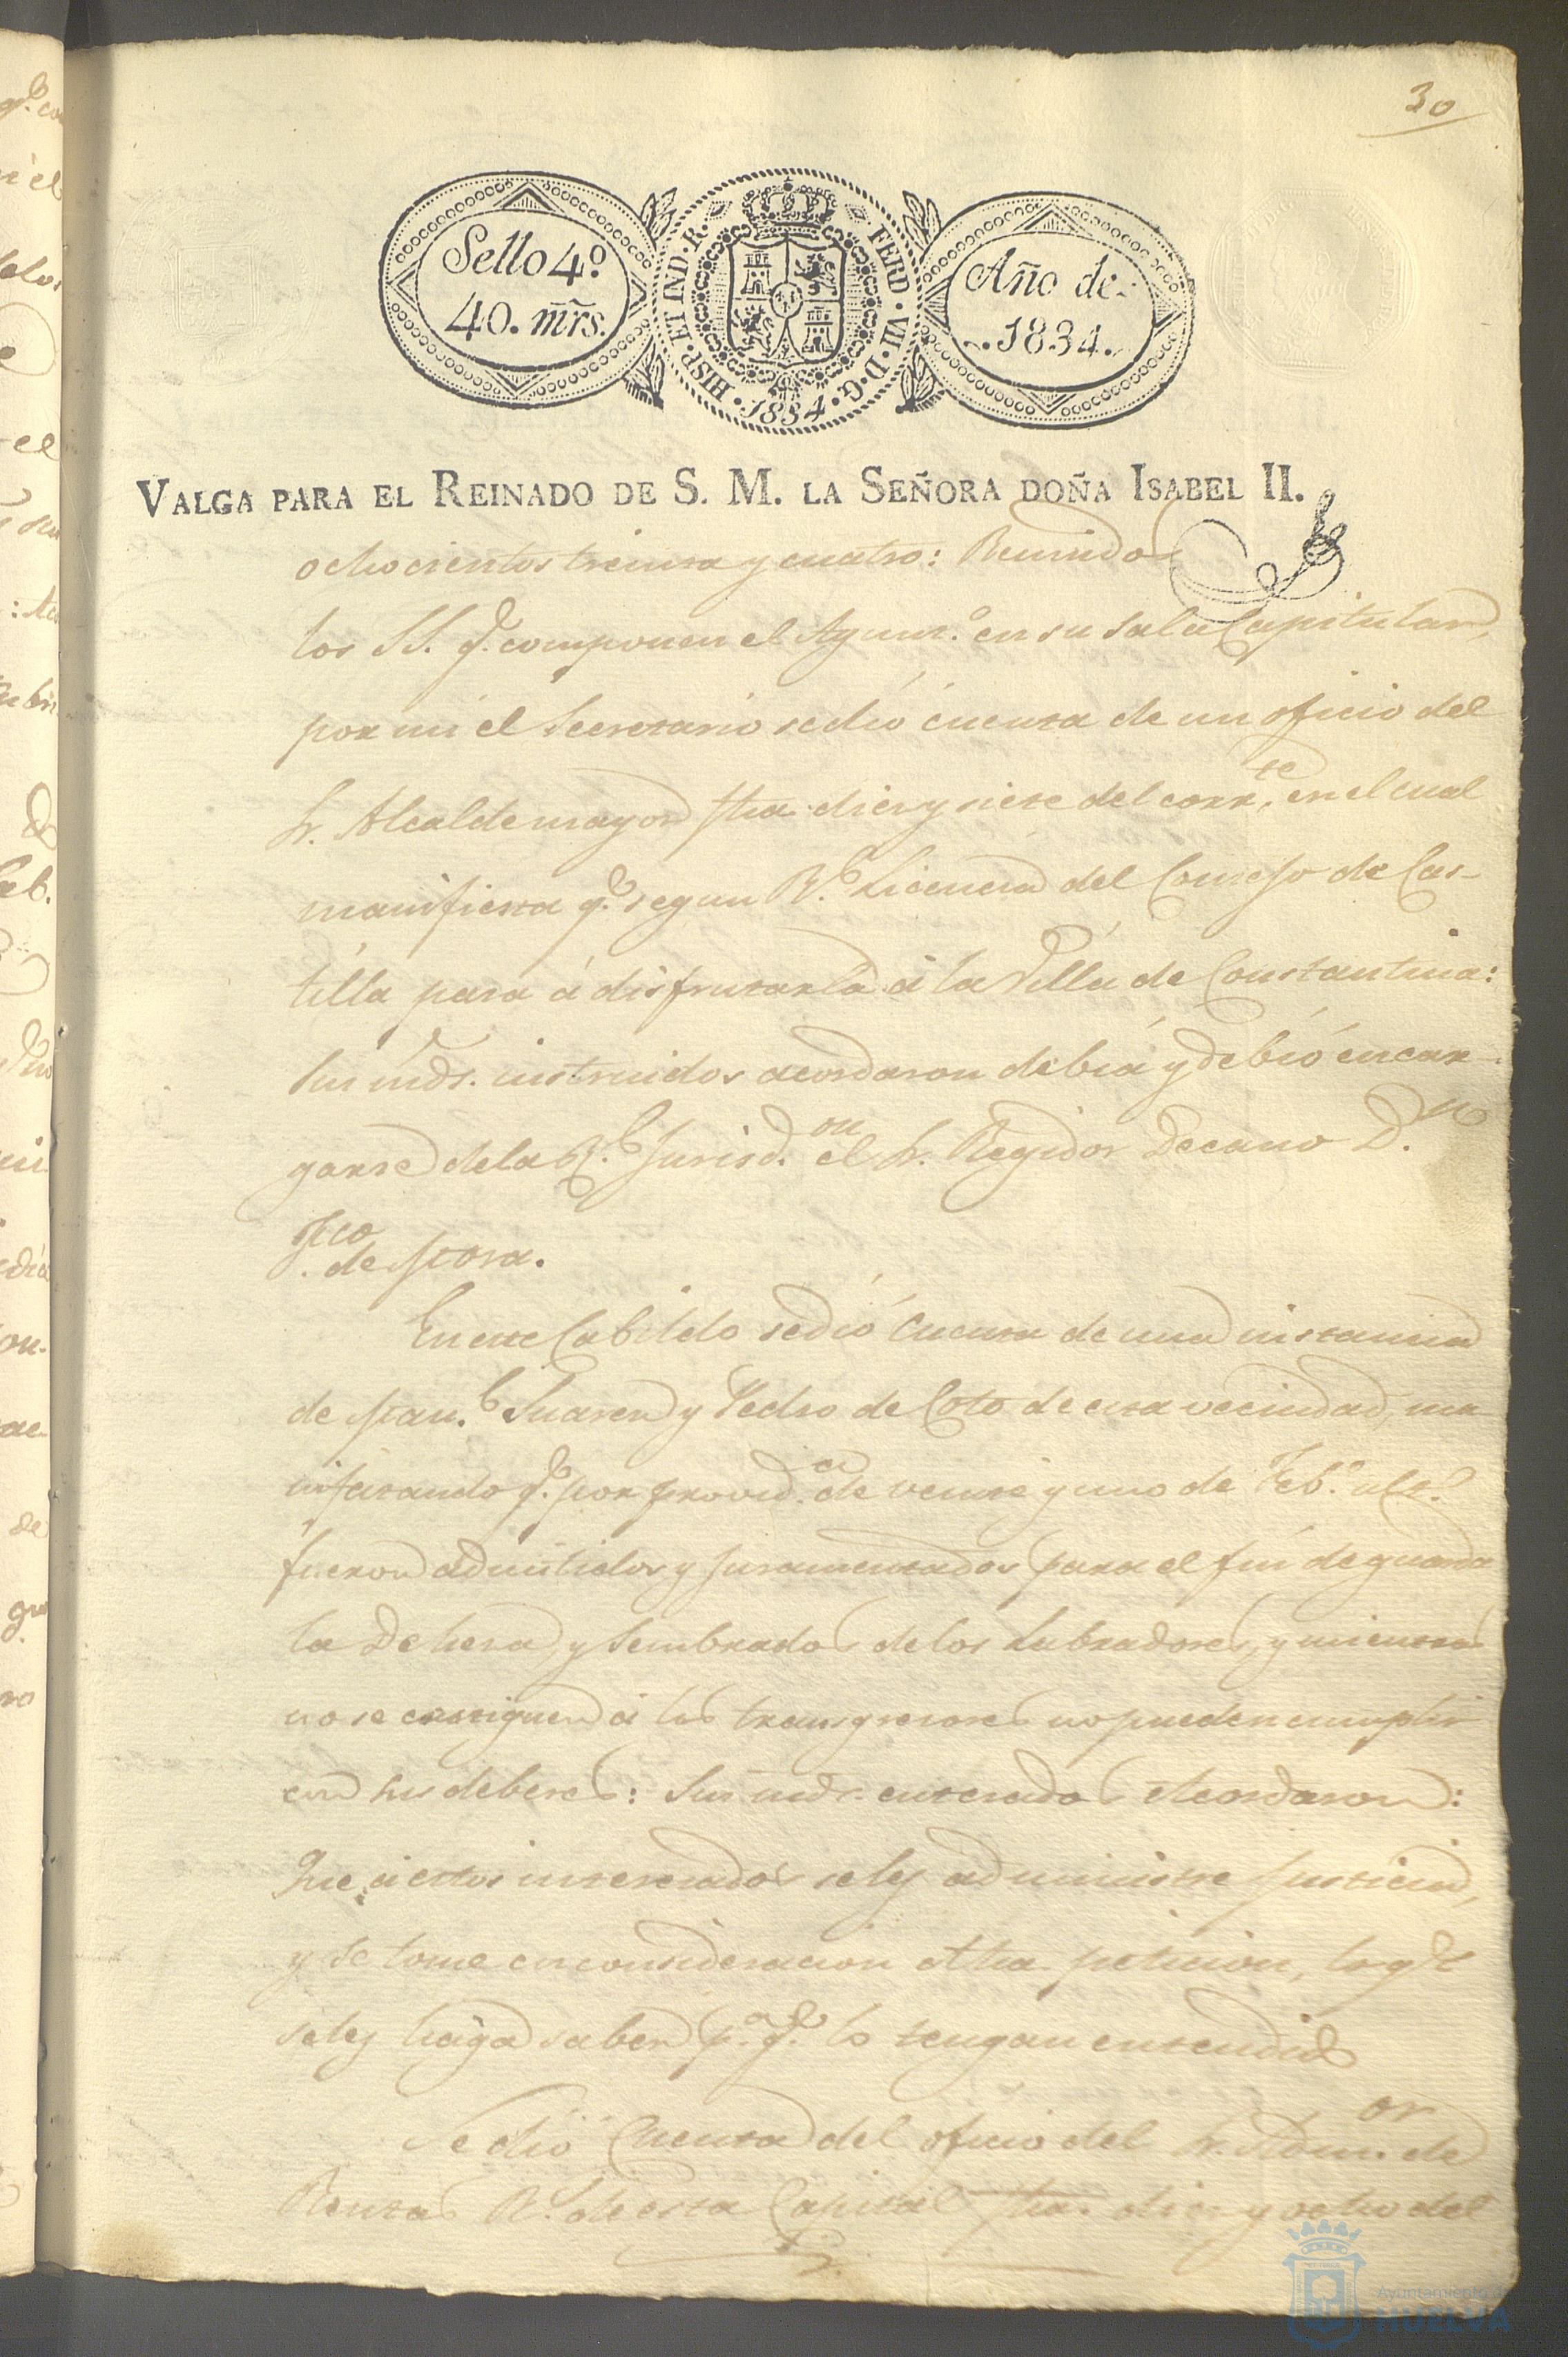 30
Sello 4º
40. mrs.
HISP. ET IND. R.
FERD. VII. D. G.
1834
Año de
1834.
VALGA PARA EL REINADO DE S. M. LA SEÑORA DOÑA ISABEL II.
ochocientos treinta y cuatro: Reunidos
los SS. q.e componen el Ayunt.º en su Sala Capitular,
por mi el Secretario se dió cuenta de un oficio del
Sr. Alcalde mayor fha. diez y siete del corr.te en el cual
manifiesta q.e segun R.l Licencia del Consejo de Cas-
tilla pasa á disfrutarla á la Villa de Constantina:
Sus mds. instruidos acordaron debia y debió encar-
garse de la R.l Jurisd.on el Sr. Regidor Decano D.n
Fco. de Mora.
En este Cabildo se dió cuenta de una instancia
de Man.l Suarez y Pedro de Coto de esta vecindad, ma-
nifestando q.e por provid.a de veinte y uno de Feb.º ult.º
fueron admitidos y juramentados para el fin de guardar
la Dehesa y Sembrados de los Labradores, y mientras
no se castiguen á los transgresores no pueden cumplir
con sus deberes: Sus mds. enterados Acordaron:
Que á estos interesados se les administre justicia,
y se tome en consideracion dha. peticion, lo q.e
se les haga saber p.a q.e lo tengan entendido
Se dió Cuenta del oficio del Sr. Adm.or de
Rentas R.s de esta Capital fha. diez y ocho del
Ayuntamiento de
HUELVA